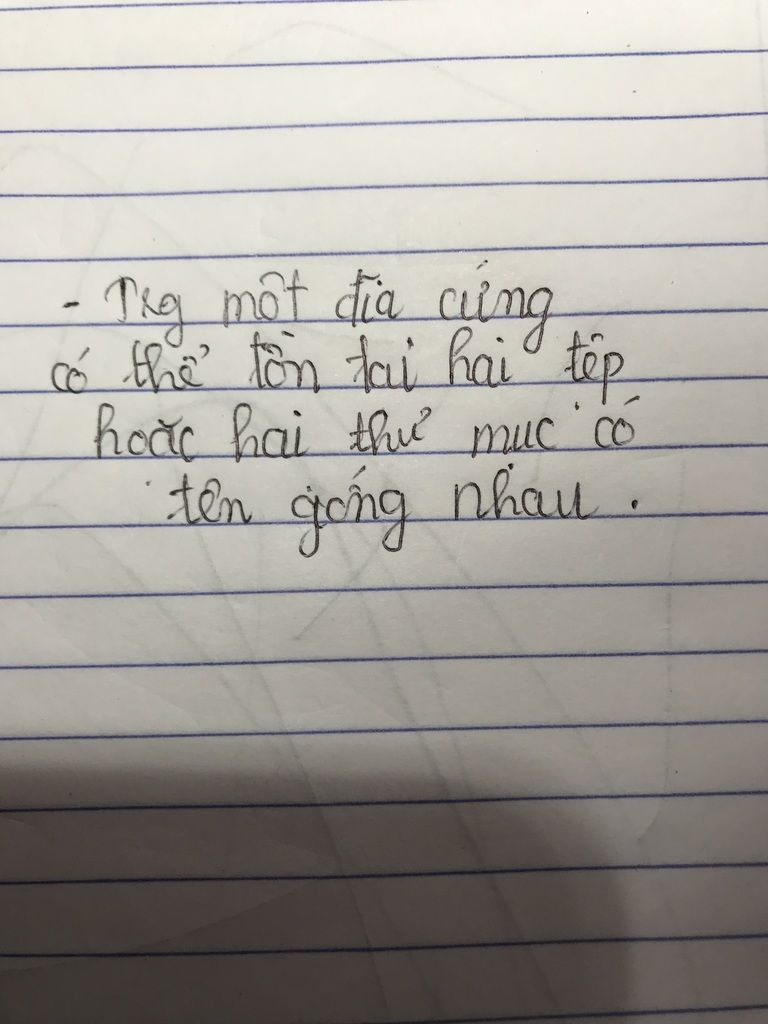 - Trg một đĩa cứng
có thể tồn tại hai tệp
hoặc hai thư mục có
tên giống nhau .